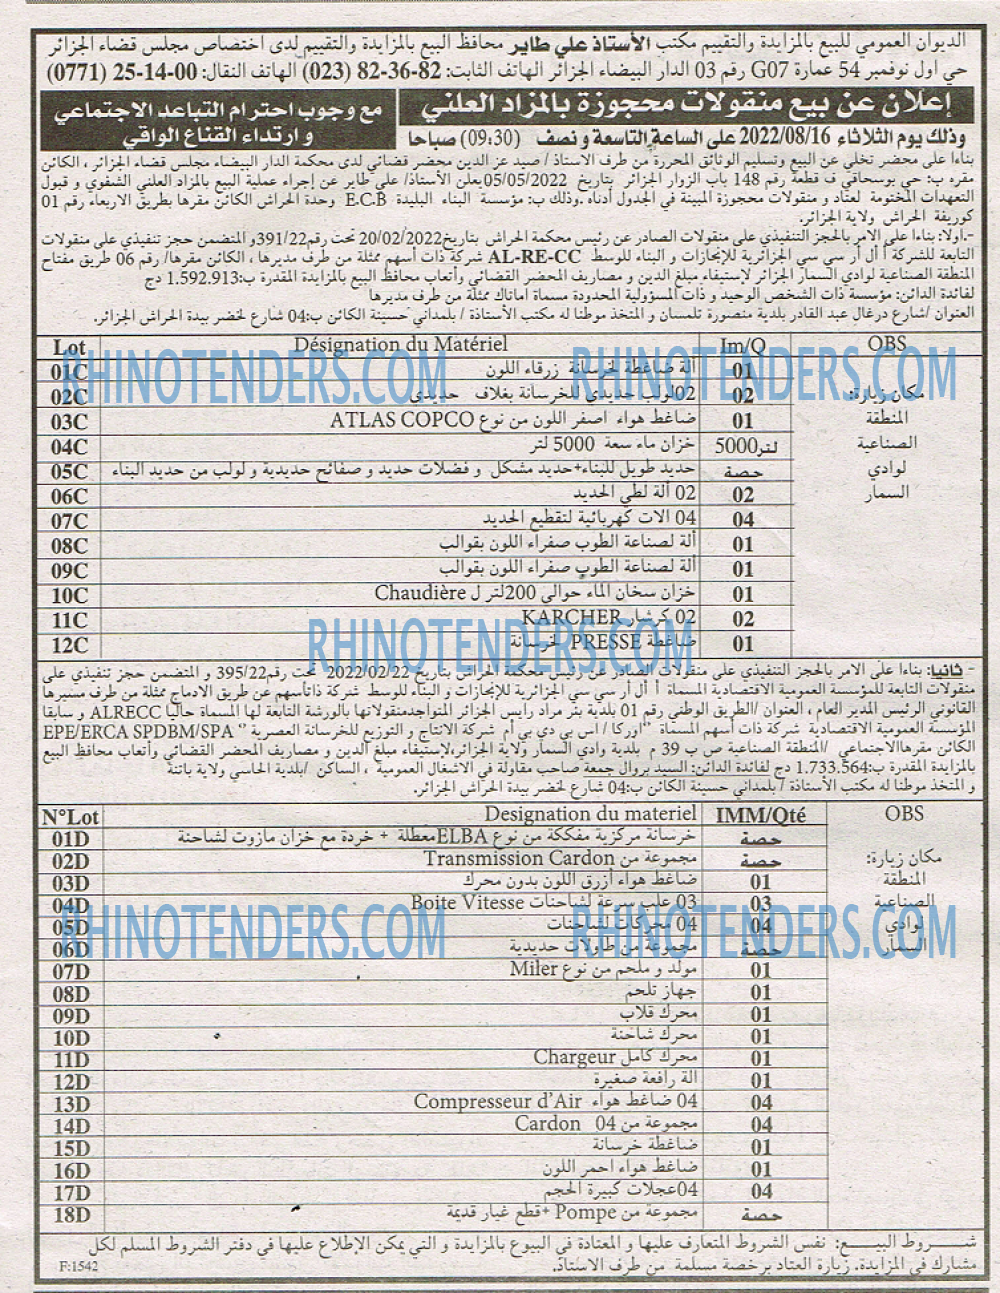 الديوان العمومي للبيع بالمزايدة والتقييم مكتب الأستاذ علي طاير محافظ البيع بالمزايدة والتقييم لدى اختصاص مجلس قضاء الجزائر
حي اول نوفمبر 54 عمارة G07 رقم 03 الدار البيضاء الجزائر الهاتف الثابت: 82-36-82 (023) الهاتف النقال: 00-14-25 (0771)
إعلان عن بيع منقولات محجوزة بالمزاد العلني
مع وجوب احترام التباعد الاجتماعي
و ارتداء القناع الواقي
وذلك يوم الثلاثاء 2022/08/16 على الساعة التاسعة و نصف (09:30) صباحا
بناءا على محضر تخلي عن البيع وتسليم الوثائق المحررة من طرف الاستاذ / صيد عز الدين محضر قضائي لدى محكمة الدار البيضاء مجلس قضاء الجزائر ، الكائن
مقره ب: حي بوسحاقي ف قطعة رقم 148 باب الزوار الجزائر بتاريخ 05/05/2022 يعلن الأستاذ/ علي طاير عن إجراء عملية البيع بالمزاد العلني الشفوي و قبول
التعهدات المختومة لعتاد و منقولات محجوزة المبينة في الجدول أدناه .وذلك ب: مؤسسة البناء البليدة E.C.B وحدة الحراش الكائن مقرها بطريق الاربعاء رقم 01
كوريفة الحراش ولاية الجزائر.
-.اولا: بناءا على الامر بالحجز التنفيذي على منقولات الصادر عن رئيس محكمة الحراش بتاريخ20/02/2022 تحت رقم391/22 والمتضمن حجز تنفيذي على منقولات
التابعة للشركة أ أل أر سي سي الجزائرية للإنجازات و البناء للوسط AL-RE-CC شركة ذات أسهم ممثلة من طرف مديرها ، الكائن مقرها/ رقم 06 طريق مفتاح
المنطقة الصناعية لوادي السمار الجزائر لاستيفاء مبلغ الدين و مصاريف المحضر القضائي وأتعاب محافظ البيع بالمزايدة المقدرة ب:1.592.913 دج
لفائدة الدائن: مؤسسة ذات الشخص الوحيد و ذات المسؤولية المحدودة مسماة اماتاك ممثلة من طرف مديرها
العنوان /شارع درغال عبد القادر بلدية منصورة تلمسان و المتخذ موطنا له مكتب الأستاذة / بلمداني حسينة الكائن ب:04 شارع لخضر بيدة الحراش الجزائر.
Lot Désignation du Matériel Im/Q OBS
01C آلة ضاغطة لخرسانة زرقاء اللون 01
02C 02لولب حديدي للخرسانة بغلاف حديدي 02 مكان زيارة:
03C ضاغط هواء اصفر اللون من نوع ATLAS COPCO 01 المنطقة
04C خزان ماء سعة 5000 لتر 5000لتر الصناعية
05C حديد طويل للبناء+حديد مشكل و فضلات حديد و صفائح حديدية و لولب من حديد البناء حصة لوادي
06C 02 ألة لطي الحديد 02 السمار
07C 04 الات كهربائية لتقطيع الحديد 04
08C ألة لصناعة الطوب صفراء اللون بقوالب 01
09C ألة لصناعة الطوب صفراء اللون بقوالب 01
10C خزان سخان الماء حوالي 200لتر ل Chaudière 01
11C 02 كرشار KARCHER 02
12C ضاغطة PRESSE لخرسانة 01
- ثانيا: بناءا على الامر بالحجز التنفيذي على منقولات الصادر عن رئيس محكمة الحراش بتاريخ 2022/02/22 تحت رقم395/22 و المتضمن حجز تنفيذي على
منقولات التابعة للمؤسسة العمومية الاقتصادية المسماة أ أل أر سي سي الجزائرية للإنجازات و البناء للوسط شركة ذاتأسهم عن طريق الادماج ممثلة من طرف مسيرها
القانوني الرئيس المدير العام ، العنوان /الطريق الوطني رقم 01 بلدية بئر مراد رايس الجزائر المتواجدمنقولاتها بالورشة التابعة لها المسماة حاليا ALRECC و سابقا
المؤسسة العمومية الاقتصادية شركة ذات أسهم المسماة "اوركا / اس بي دي بي أم شركة الانتاج و التوزيع للخرسانة العصرية " EPE/ERCA SPDBM/SPA
الكائن مقرهاالاجتماعي /المنطقة الصناعية ص ب 39 م بلدية وادي السمار ولاية الجزائر،لاستيفاء مبلغ الدين و مصاريف المحضر القضائي وأتعاب محافظ البيع
بالمزايدة المقدرة ب:1.733.564 دج لفائدة الدائن: السيد بروال جمعة صاحب مقاولة في الاشغال العمومية ، الساكن /بلدية الحاسي ولاية باتنة
و المتخذ موطنا له مكتب الأستاذة / بلمداني حسينة الكائن ب:04 شارع لخضر بيدة الحراش الجزائر.
N°Lot Designation du materiel IMM/Qté OBS
01D خرسانة مركزية مفككة من نوع ELBAمعطلة + خردة مع خزان مازوت لشاحنة حصة
02D مجموعة من Transmission Cardon حصة مكان زيارة:
03D ضاغط هواء أزرق اللون بدون محرك 01 المنطقة
04D 03 علب سرعة لشاحنات Boite Vitesse 03 الصناعية
05D 04 محركات لشاحنات 04 لوادي
06D مجموعة من طاولات حديدية حصة السمار
07D مولد و ملحم من نوع Miler 01
08D جهاز تلحم 01
09D محرك قلاب 01
10D محرك شاخنة 01
11D محرك كامل Chargeur 01
12D الة رافعة صغيرة 01
13D 04 ضاغط هواء Compresseur d'Air 04
14D مجموعة من 04 Cardon 04
15D ضاغطة خرسانة 01
16D ضاغط هواء احمر اللون 01
17D 04عجلات كبيرة الحجم 04
18D مجموعة من Pompe +قطع غيار قديمة حصة
شــروط البيــع: نفس الشروط المتعارف عليها و المعتادة في البيوع بالمزايدة و التي يمكن الإطلاع عليها في دفتر الشروط المسلم لكل
مشارك في المزايدة. زيارة العتاد برخصة مسلمة من طرف الاستاذ.
F:1542
RHINOTENDERS.COM
RHINOTENDERS.COM
RHINOTENDERS.COM
RHINOTENDERS.COM
RHINOTENDERS.COM